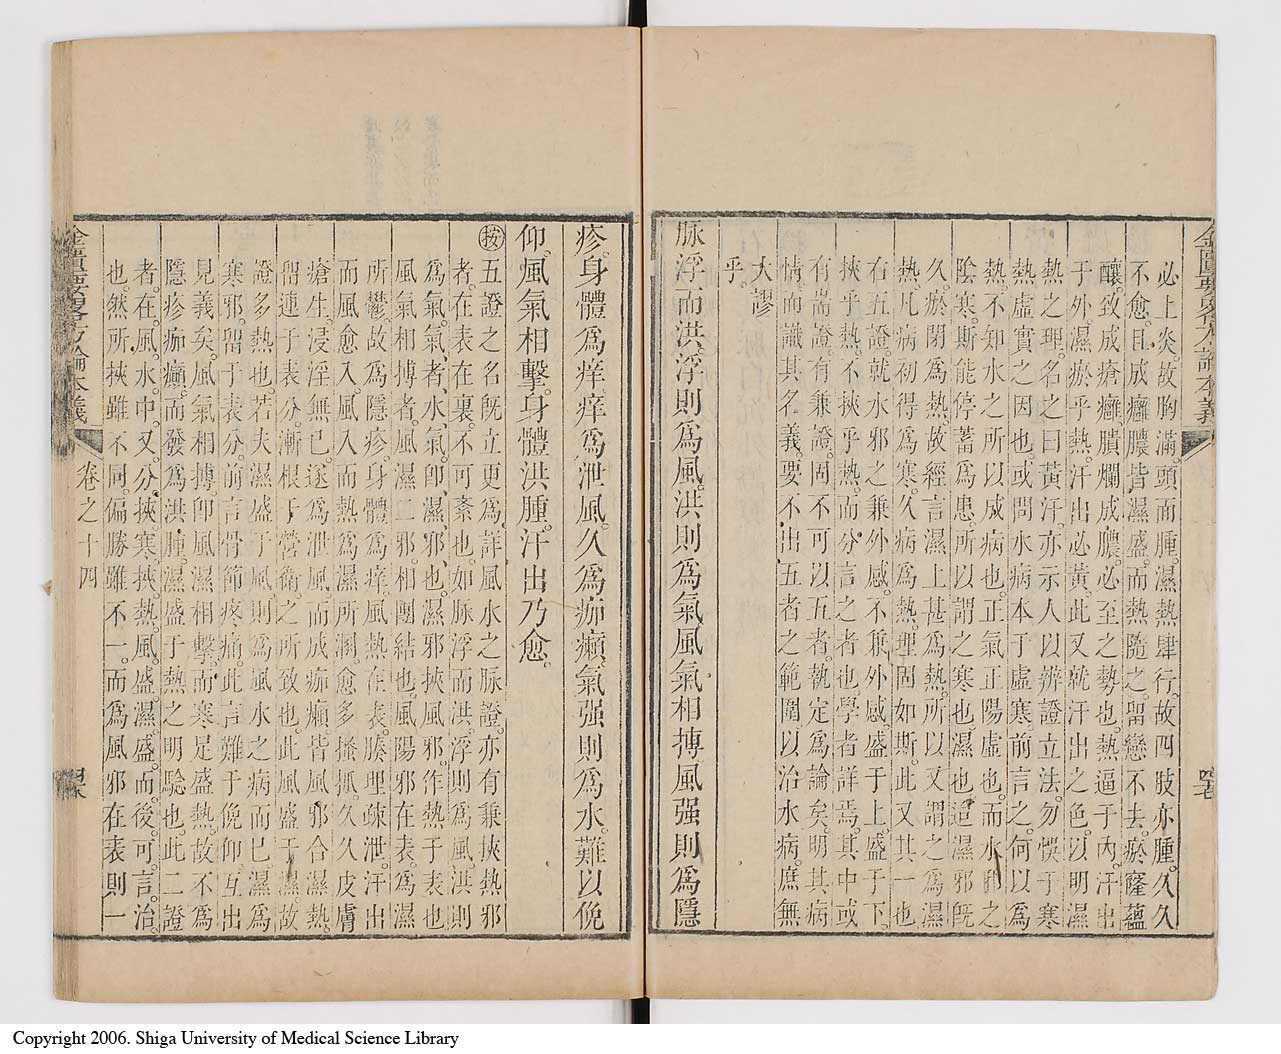 金匱要略方論本義
必上炎。故胸滿。頭面腫濕熱肆行。故四肢亦腫。久久
不愈。且成癰膿。皆濕盛而熱隨之。留戀不去。瘀窿蘊
釀。致成瘡癰。膹爛成膿。必至之勢也。熱逼于內。汗出
于外。濕瘀乎熱。汗出必黃。此又就汗出之色。以明濕
熱之理。名之曰黃汗。亦示人以辨證立法。勿悞于寒
熱虛實之因也。或問水病本于虛寒。前言之。何以爲
熱。不知水之所以成病也。正氣正陽虛也。而水卽之
陰寒。斯能停蓄爲患。所以謂之寒也。濕也。迨濕邪旣
久。瘀閉爲熱。故經言濕上甚爲熱。所以又謂之爲濕
熱。凡病初得爲寒。久病爲熱。理固如斯。此又其一也
右五證。就水邪之兼外感。不兼外感。盛于上。盛于下
挾乎熱。不挾乎熱。而分言之者也。學者詳焉。其中或
有耑證。有兼證。固不可以五者。執定爲論矣。明其病
情。而識其名義。要不出五者之範圍。以治水病。庶無
大謬
乎。
脉浮而洪。浮則爲風。洪則爲氣。風氣相摶。風强則爲隱
疹。身體爲痒。痒爲泄風。久爲痂癩。氣强則爲水。難以俛
仰。風氣相擊。身體洪腫。汗出乃愈。
按五證之名旣立。更爲詳風水之脉證。亦有兼挾熱邪
者。在表在裏。不可紊也。如脉浮而洪。浮則爲風。洪則
爲氣。氣者。水氣。卽濕邪也。濕邪挾風邪。作熱于表也
風氣相搏者。風濕二邪。相團結也。風陽邪在表。爲濕
所鬱。故爲隱疹。身體爲痒。風熱在表。腠理疎泄。汗出
而風愈入。風入而熱爲濕所溷。愈多搔抓。久久皮膚
瘡生。浸淫無已。遂爲泄風。而成痂癩。皆風邪合濕熱。
留連于表分。漸根于營衛之所致也。此風盛于濕。故
證多熱也。若夫濕盛于風。則爲風水之病而已。濕爲
寒邪。留于表分。前言骨節疼痛。此言難于俛仰。互出
見義矣。風氣相搏。卽風濕相擊。而寒是盛熱。故不爲
隱疹痂癩。而發爲洪腫。濕盛于熱之明騐也。此二證
者。在風。水。中。又。分。挾。寒。挾。熱。風。盛。濕。盛。而後。可。言。治
也。然所挾雖不同。偏勝雖不一。而爲風邪在表則一
金匱要略方論本義
卷之十四
Copyright 2006. Shiga University of Medical Science Library